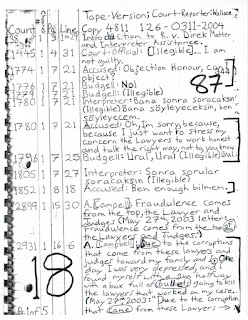 Tape-Version: Court-Reporter: Wallace
Count Pg Line Copy #811 126-0311-2004
Introduction to R. v. Direk Mutter
and Interpreter Assistance.
1745 1 4 31 Court-Official: (Illegible).. I am
not guilty.
1774 1 7 21 Accused: Objection Honour, can I
object?
1774 1 7 21 Budgell: No!
1778 1 7 21 Budgell: (Illegible)
87
1780 1 7 21 Interpreter: Bana sonra soracaksın
(Illegible) Bana sen söyleyeceksin, ben
söylüyecem.
1780 1 7 21 Accused: I'm sorry, because,
because I just want to stress my
concern the Lawyers to work honest
and talk the right way, not to, you know
1791 1 7 25 Budgell: Ural, Ural (Illegible) Ural
1805 1 7 27 Interpreter: Sonra sorular
soracaksın (Illegible)
1852 1 8 18 Accused: Ben enough bilmem.
2899 1 15 30 A. Campbell: Fraudulence comes
from the top, the Lawyer and
Judges (May 27th 2003 letter:
Fraudulence comes from the
the Lawyers and Judges.)
2931 1 16 6 A. Campbell: due to the corruptions
that come from these lawyers and
judges toward my family and I. One
day I was very depressed, and I
found myself with a gun, halfway
with a box full of (bullet) going to kill
the lawyers that worked on my case.
(May 27th 2003: "Due to the corruption
that come from these Lawyers →
18
A. 1 of 5